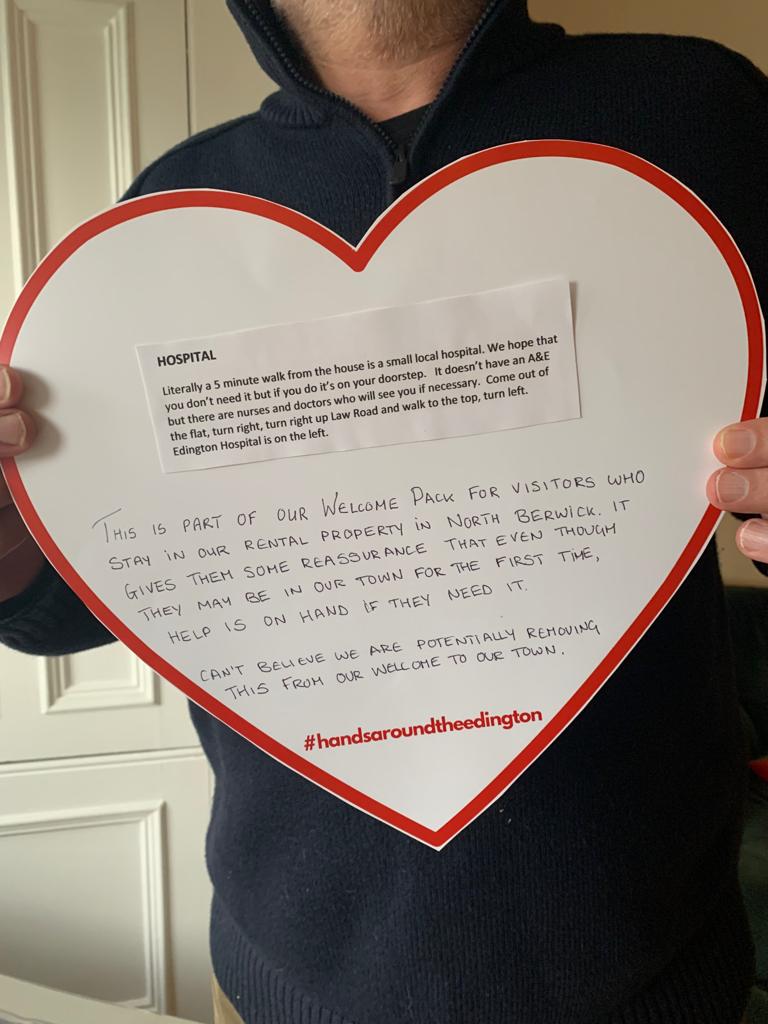 HOSPITAL
Literally a 5 minute walk from the house is a small local hospital. We hope that
you don't need it but if you do it's on your doorstep.  It doesn't have an A&E
but there are nurses and doctors who will see you if necessary.  Come out of
the flat, turn right, turn right up Law Road and walk to the top, turn left.
Edington Hospital is on the left.
THIS IS PART OF OUR WELCOME PACK FOR VISITORS WHO
STAY IN OUR RENTAL PROPERTY IN NORTH BERWICK. IT
GIVES THEM SOME REASSURANCE THAT EVEN THOUGH
THEY MAY BE IN OUR TOWN FOR THE FIRST TIME,
HELP IS ON HAND IF THEY NEED IT.
CAN'T BELIEVE WE ARE POTENTIALLY REMOVING
THIS FROM OUR WELCOME TO OUR TOWN.
#handsaroundtheedington